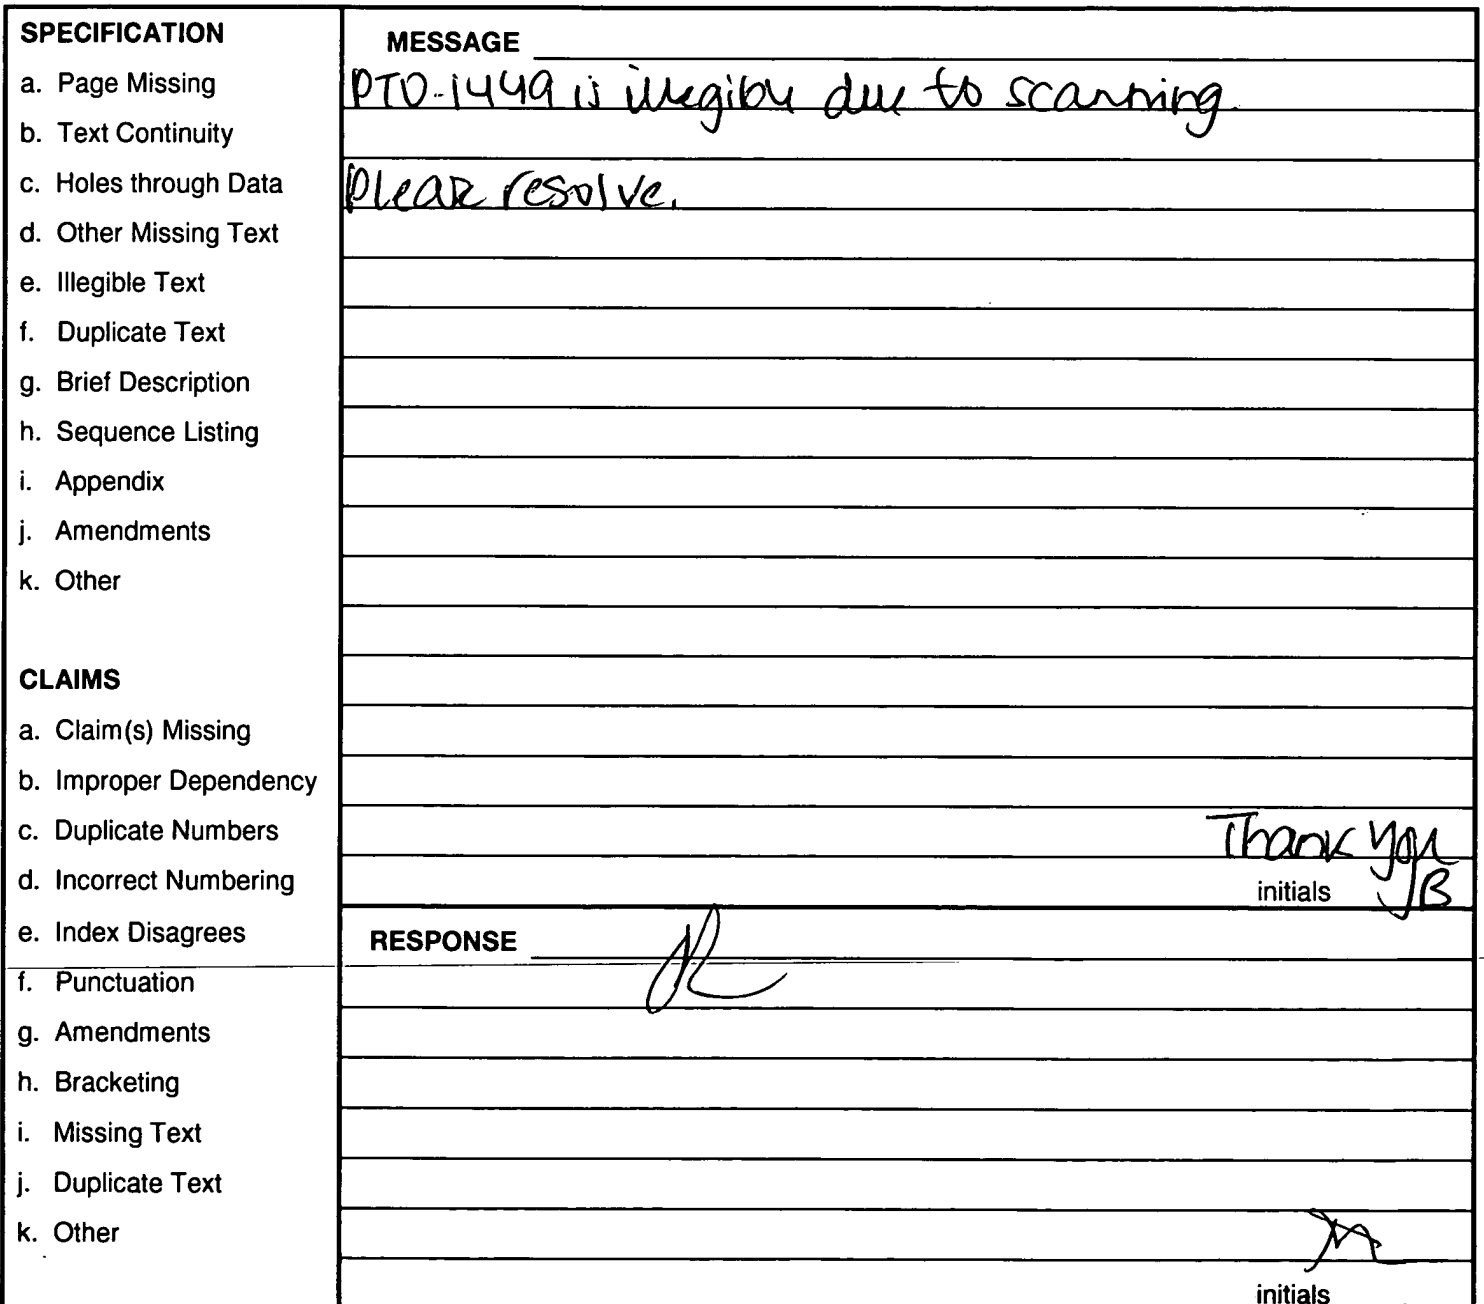 SPECIFICATION
a. Page Missing
b. Text Continuity
c. Holes through Data
d. Other Missing Text
e. Illegible Text
f. Duplicate Text
g. Brief Description
h. Sequence Listing
i. Appendix
j. Amendments
k. Other
CLAIMS
a. Claim(s) Missing
b. Improper Dependency
c. Duplicate Numbers
d. Incorrect Numbering
e. Index Disagrees
f. Punctuation
g. Amendments
h. Bracketing
i. Missing Text
j. Duplicate Text
k. Other
MESSAGE
PTO-1449 is illegible due to scanning.
Please resolve.
Thank you
initials JB
RESPONSE
initials